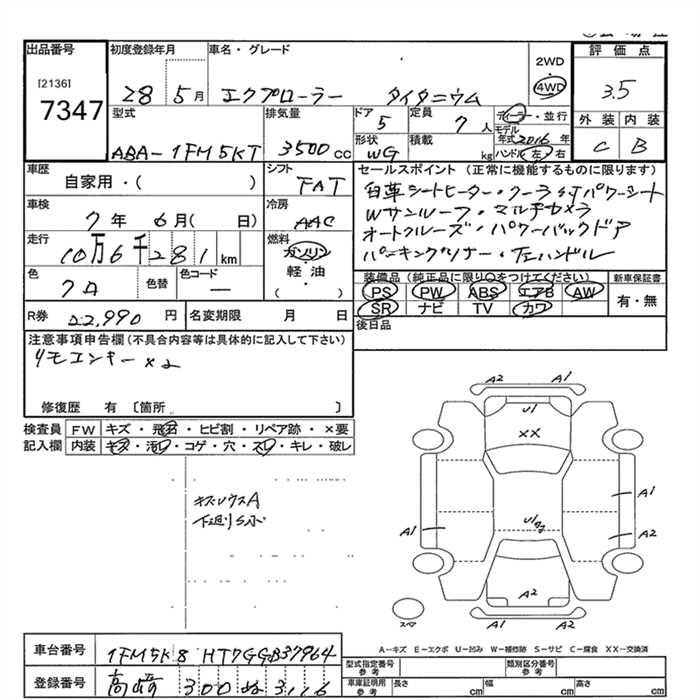 出品番号 初度登録年月 車名・グレード 2WD 評価点
[2136] 7347 28 5月 エクプローラー タイタニウム 4WD 3.5
型式 排気量 ドア 定員 ディーラー・並行 外装 内装
ABA-1FM5KT 3500cc 5 7人 モデル年式 2016年 C B
形状 WG 積載 kg ハンドル 左 右
車歴 シフト セールスポイント(正常に機能するものに限ります)
自家用・( ) FAT
白革シートヒーター・クーラー付パワーシート
車検 冷房 Wサンルーフ・マルチカメラ
7年 6月( 日) AAC オートクルーズ・パワーバックドア
走行 燃料 パーキングソナー・左ハンドル
10万6千281km ガソリン
軽・油
( )
色 色替 色コード
クロ ー
装備品(純正品に限り○をつけてください) 新車保証書
PS PW ABS エアB AW 有・無
SR ナビ TV カワ
R券 22,990円 名変期限 月 日 後日品
注意事項申告欄(不具合内容等は具体的に記入して下さい)
リモエンキー x2
修復歴 有 〔箇所 〕
検査員 FW キズ・飛石・ヒビ割・リペア跡・×要
記入欄 内装 キズ・汚レ・コゲ・穴・スレ・キレ・破レ
A2 A1
U1
XX
キズレウスA
下廻りサビ
A1
A1 U1 A2
A2
A2 A1
スマ
A-キズ E-エクボ U-凹み W-補修跡 S-サビ C-腐食 XX-交換済
車台番号 1FM5K8HT7GGB37964
型式指定番号 参考 類別区分番号 参考
登録番号 高崎 300 ぬ 3116
車庫証明用 参考 長さ cm 幅 cm 高さ cm